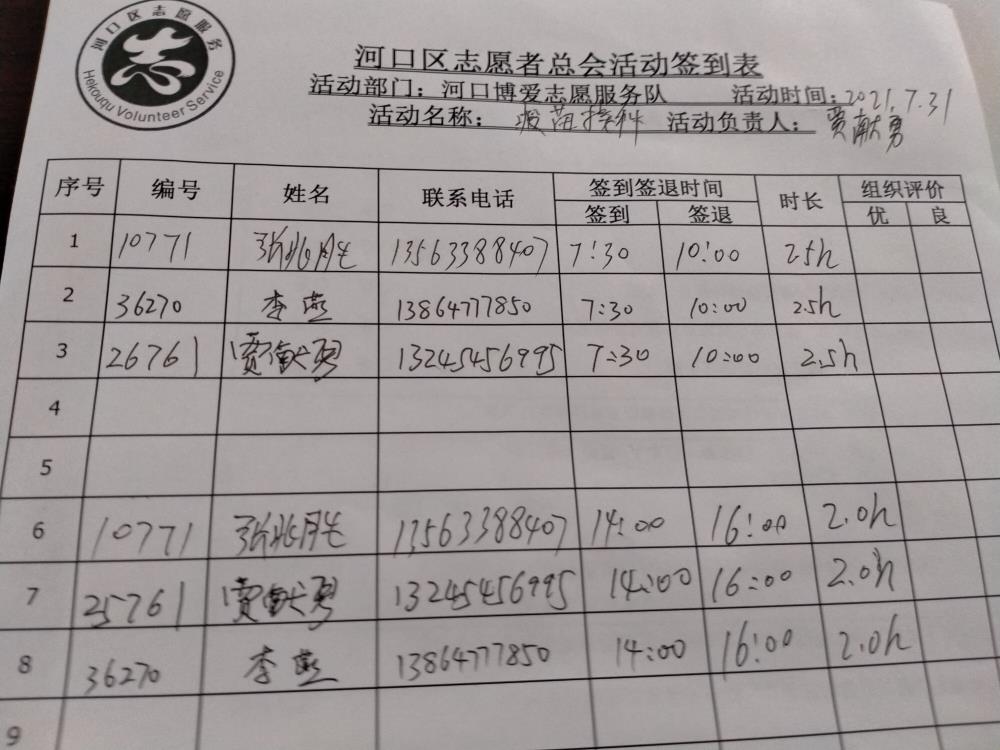 河口区志愿服务
志
Hekouqu Volunteer Service
河口区志愿者总会活动签到表
活动部门：河口博爱志愿服务队 活动时间：2021.7.31
活动名称： 疫苗接种 活动负责人： 贾献勇
序号 编号 姓名 联系电话 签到签退时间 时长 组织评价
签到 签退 优 良
1 10771 张兆胜 13563388407 7:30 10:00 2.5h
2 36270 李燕 13864777850 7:30 10:00 2.5h
3 26761 贾献勇 13245456995 7:30 10:00 2.5h
4
5
6 10771 张兆胜 13563388407 14:00 16:00 2.0h
7 25761 贾献勇 13245456995 14:00 16:00 2.0h
8 36270 李燕 13864777850 14:00 16:00 2.0h
9